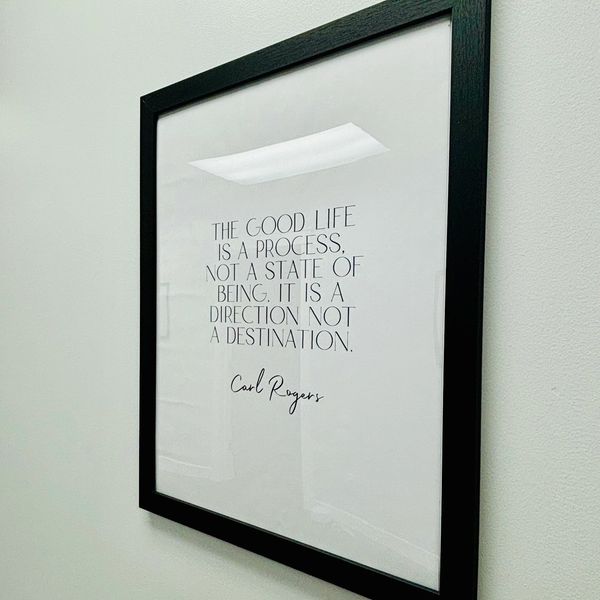 THE GOOD LIFE
IS A PROCESS,
NOT A STATE OF
BEING. IT IS A
DIRECTION NOT
A DESTINATION.
Carl Rogers